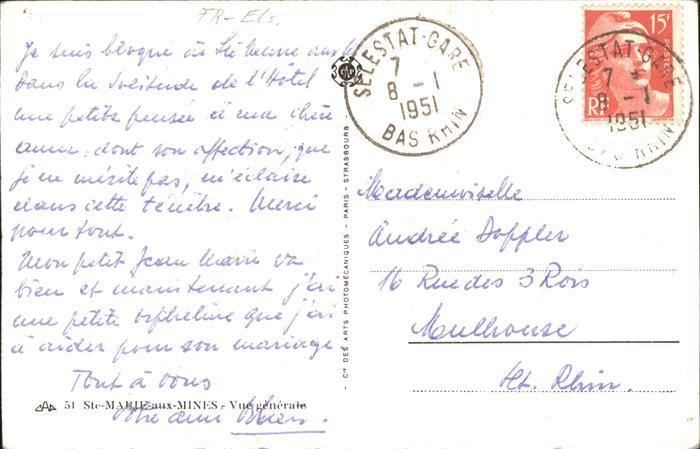 FR-Els.
Je suis bloqué à Ste Marie aux
Dans la Solitude de l'Hôtel
une petite pensée à ma chère
amie, dont son affection, que
je ne mérite pas, m'éclaire
dans cette ténèbre. Merci
pour tout.
Mon petit Jean Marie va
bien et maintenant j'ai
une petite orpheline que j'ai
à aider pour son mariage
Tout à vous
Votre ami
51 Ste-MARIE-aux-MINES - Vue générale
CAP
Cie DES ARTS PHOTOMÉCANIQUES - PARIS - STRASBOURG -
SELESTAT-GARE
7
8 - 1
1951
BAS RHIN
15F
POSTES
RF
SELESTAT-GARE
7
8 - 1
1951
BAS RHIN
Mademoiselle
Andrée Doppler
16 Rue des 3 Rois
Mulhouse
Ht. Rhin.